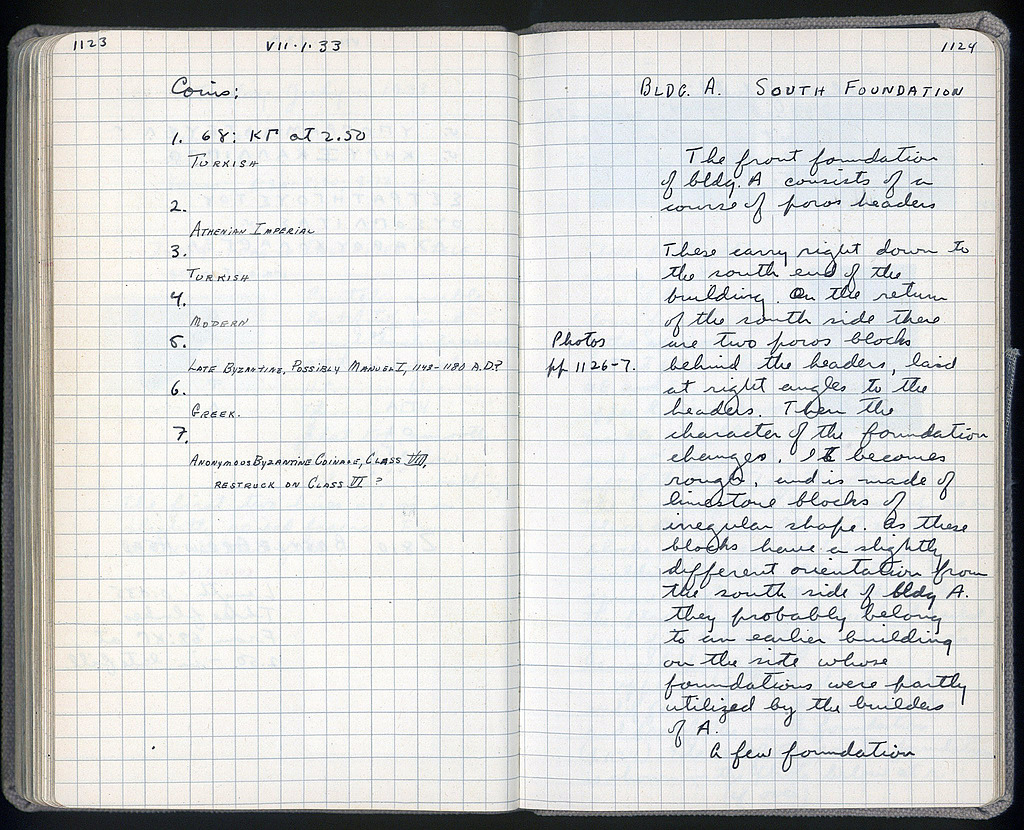 1123
VII·1·33
Coins:
1. 68: ΚΓ at 2.50
TURKISH
2.
ATHENIAN IMPERIAL
3.
TURKISH
4.
MODERN
5.
LATE BYZANTINE, POSSIBLY MANUEL I, 1143-1180 A.D.?
6.
GREEK.
7.
ANONYMOUS BYZANTINE COINAGE, CLASS VIII,
RESTRUCK ON CLASS VI ?
1124
BLDG. A. SOUTH FOUNDATION
The front foundation
of bldg. A consists of a
course of poros headers
These carry right down to
the south end of the
building. On the return
of the south side there
Photos
pp 1126-7.
are two poros blocks
behind the headers, laid
at right angles to the
headers. Then the
character of the foundation
changes. It becomes
rough, and is made of
limestone blocks of
irregular shape. As these
blocks have a slightly
different orientation from
the south side of bldg A.
they probably belong
to an earlier building
on the site whose
foundations were partly
utilized by the builders
of A.
A few foundation